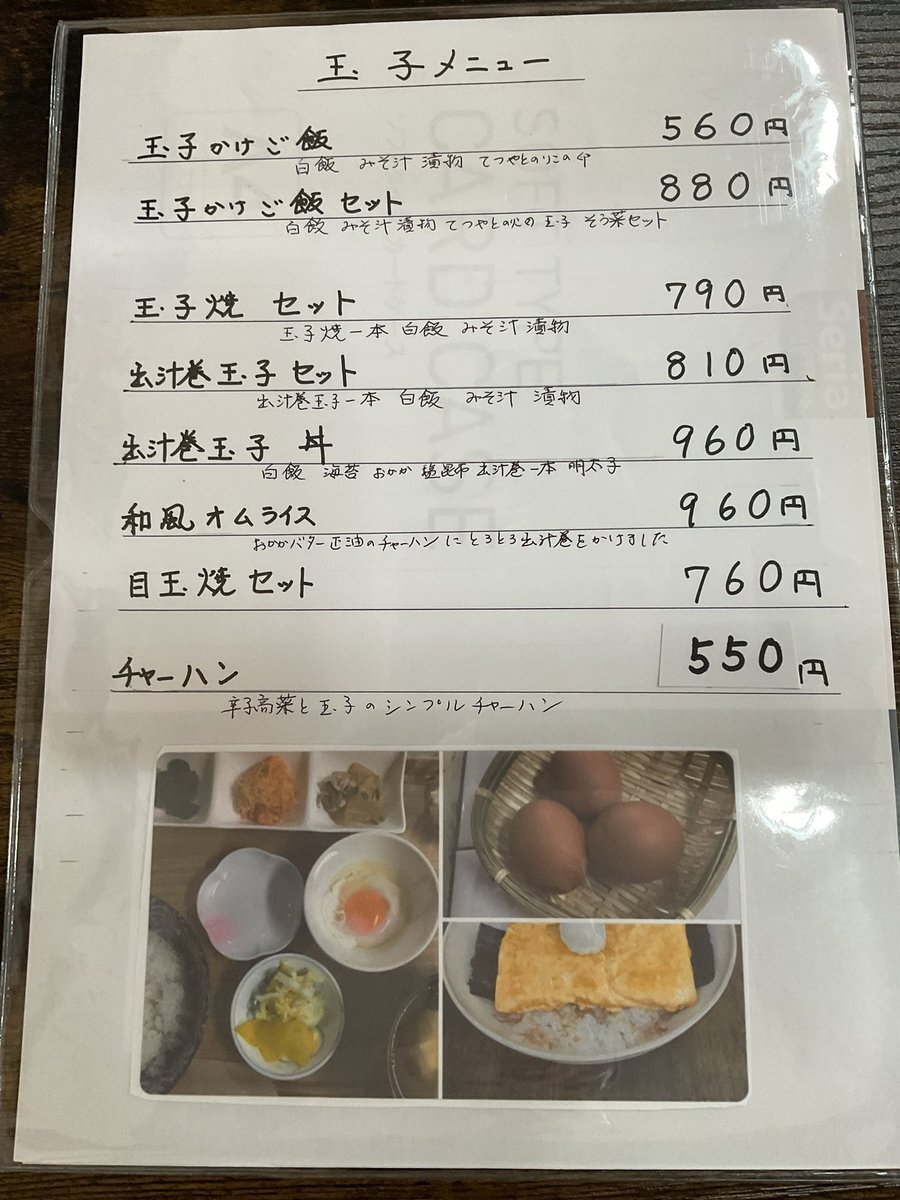 玉子メニュー
玉子かけご飯 560円
白飯 みそ汁 漬物 てつやとのりこの卵
玉子かけご飯 セット 880円
白飯 みそ汁 漬物 てつやとの 玉子 そう菜セット
玉子焼 セット 790円
玉子焼一本 白飯 みそ汁 漬物
出汁巻玉子 セット 810円
出汁巻玉子一本 白飯 みそ汁 漬物
出汁巻玉子 丼 960円
白飯 海苔 おかか 塩昆布 出汁巻一本 明太子
和風オムライス 960円
おかかバター正油のチャーハンにとろとろ出汁巻をかけました
目玉焼セット 760円
チャーハン 550円
辛子高菜と玉子のシンプルチャーハン
SOFT TYPE
CARD CASE